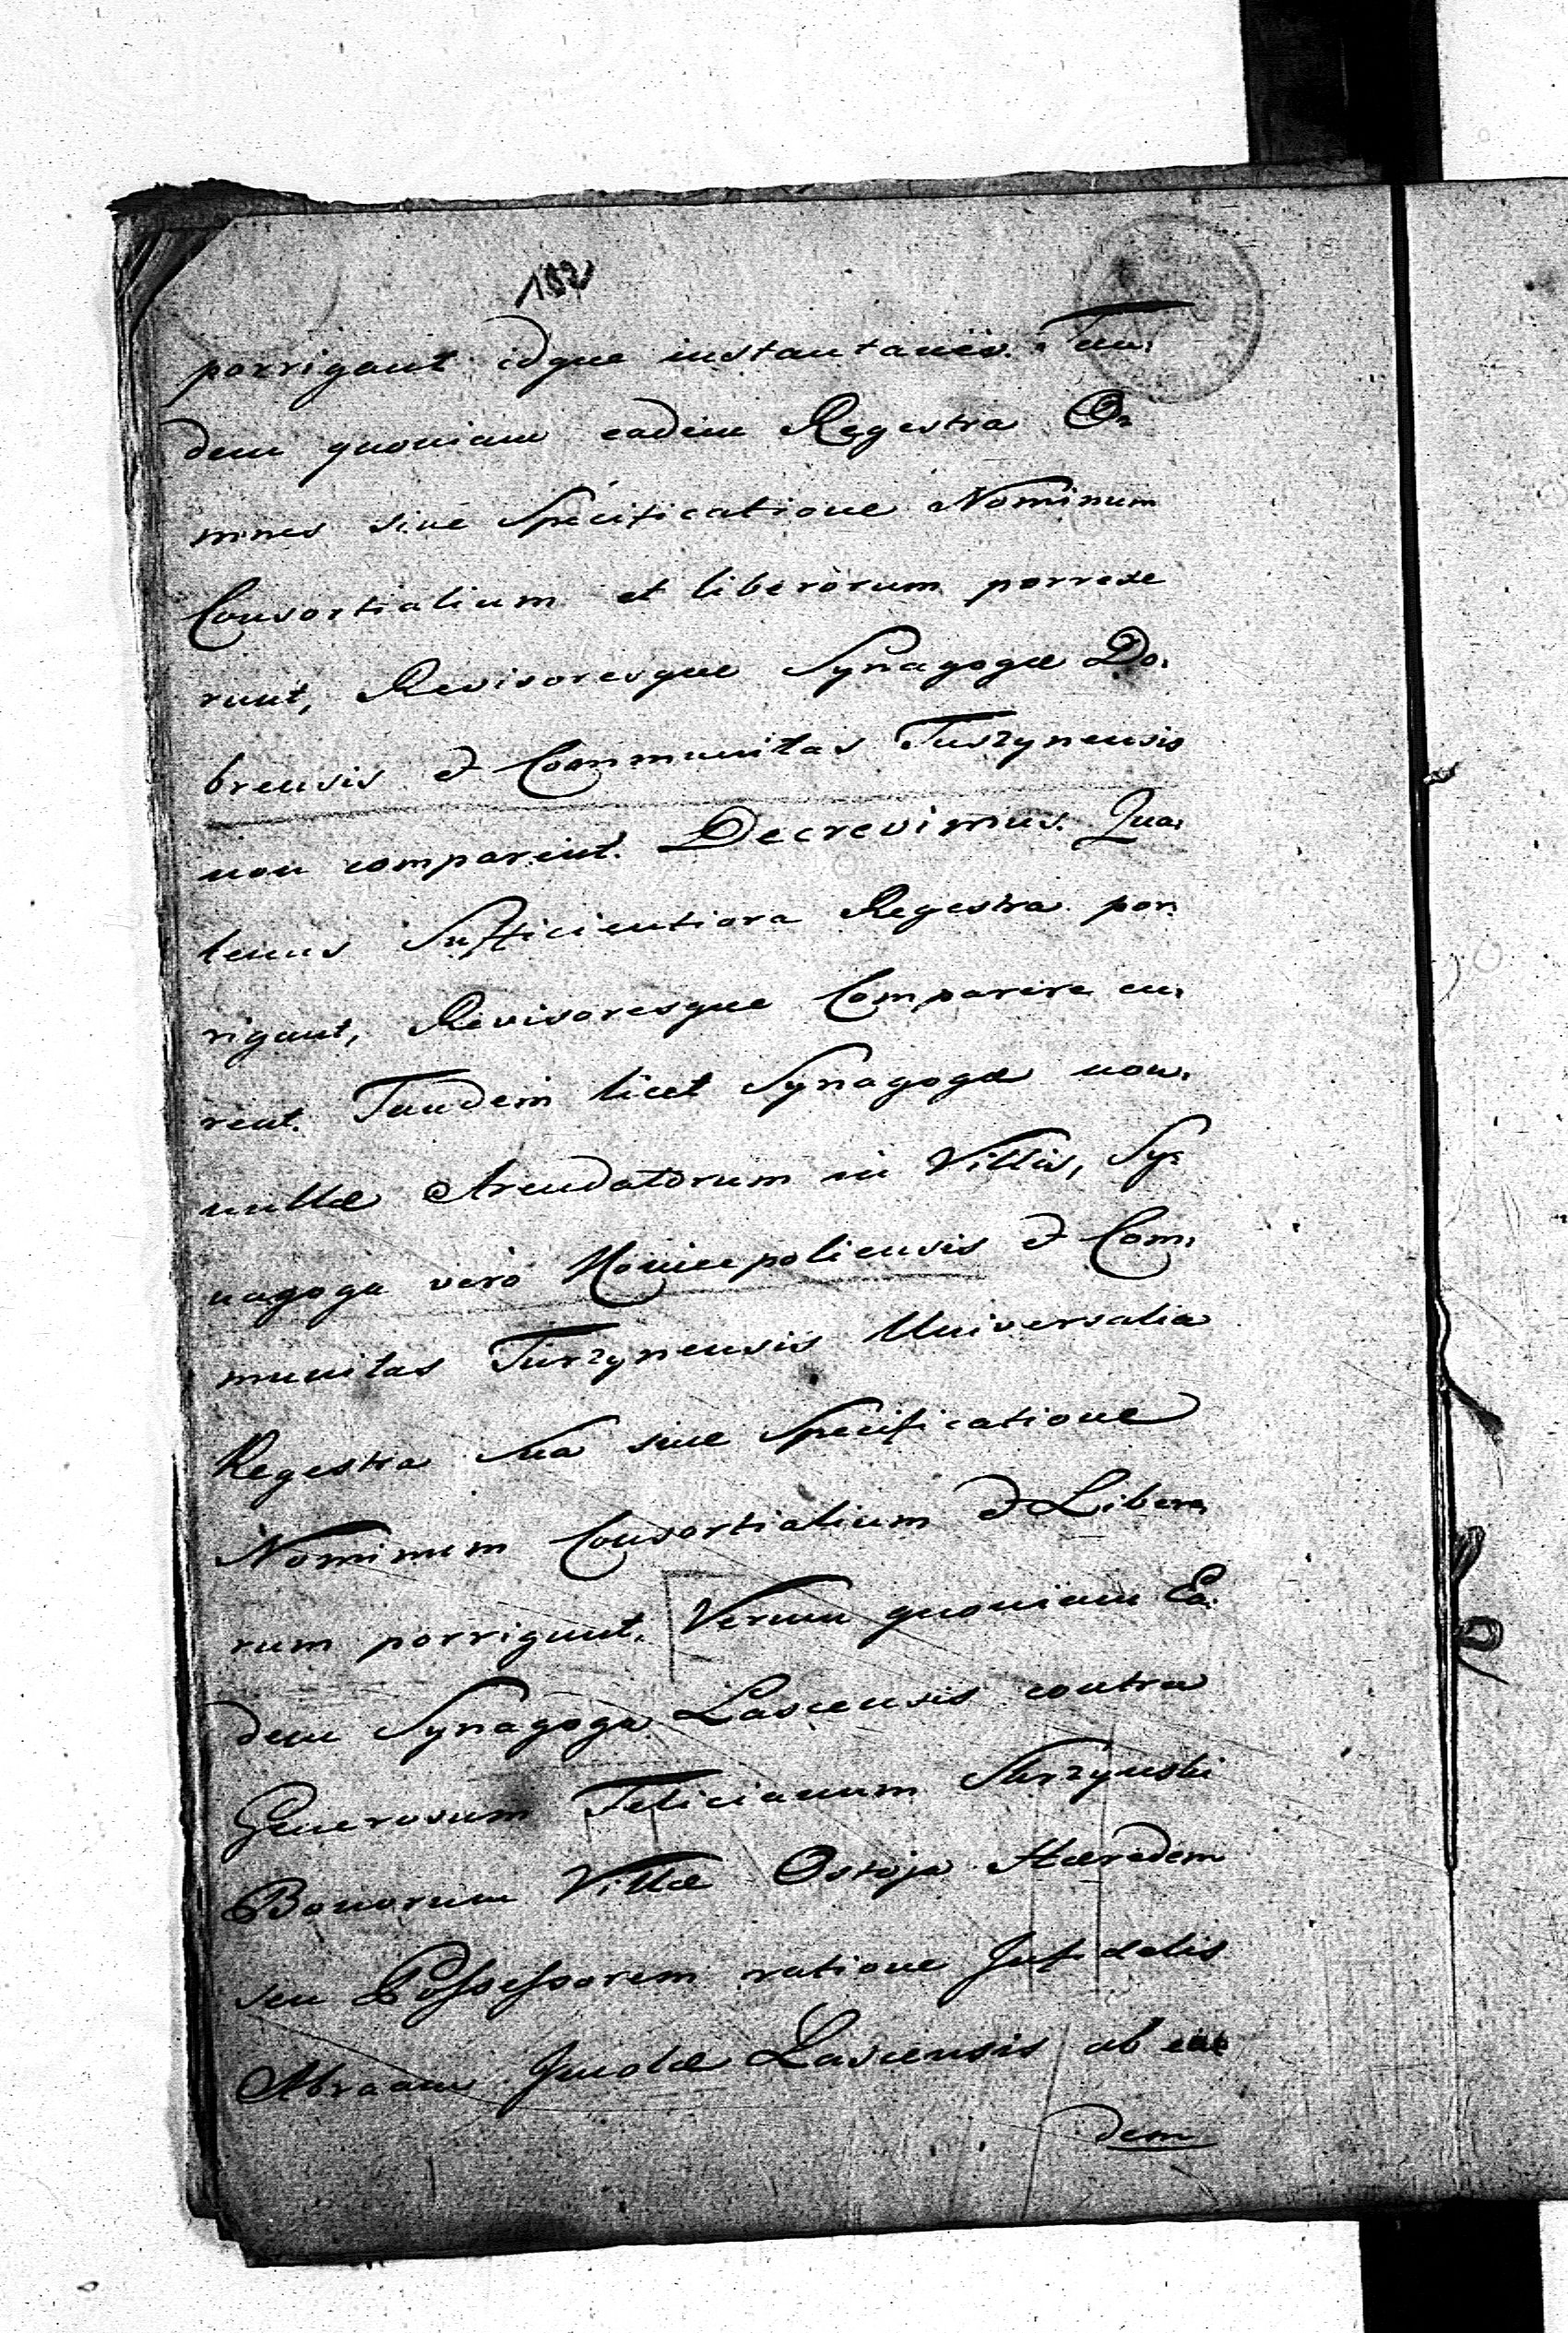 182
porrigant idque instantaneè. Tan,
dem quoniam eadem Regestra O,
mnes sine Specificatione Nominum
Consortialium et liberorum porrexe
runt, Revisoresque Synagogæ Do,
brensis et Communitas Tuszynensis
non comparent. Decrevimus. Qua,
tenus Sufficientiora Regestra por,
rigant, Revisoresque Comparere cu,
rent. Tandem licet Synagogæ non,
nullæ Arendatorum in Villis, Sy,
nagoga verò polienSis et Com,
munitas Tuszynensis Universalia
Regestra Sua sine Specificatione
Nominum Consortialium et Libero,
rum porrigunt. Verum quoniam Ea,
dem Synagoga Lascensis contra
Generosum Felicianum
Bonorum Villæ Ostoja Hæredem
seu Possessorem ratione Infidelis
Abraam Incolæ Lascensis ab ea
dem